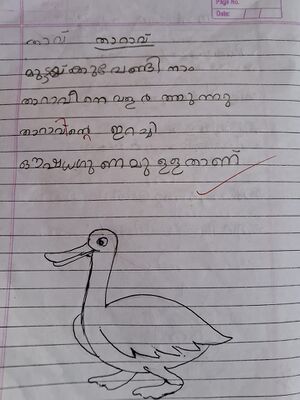 Page No.
Date:
താവ് താറാവ്
മുട്ടയ്ക്കുവേണ്ടി നാം
താറാവിനെ വളർത്തുന്നു
താറാവിന്റെ ഇറച്ചി
ഔഷധഗുണമുള്ളതാണ്